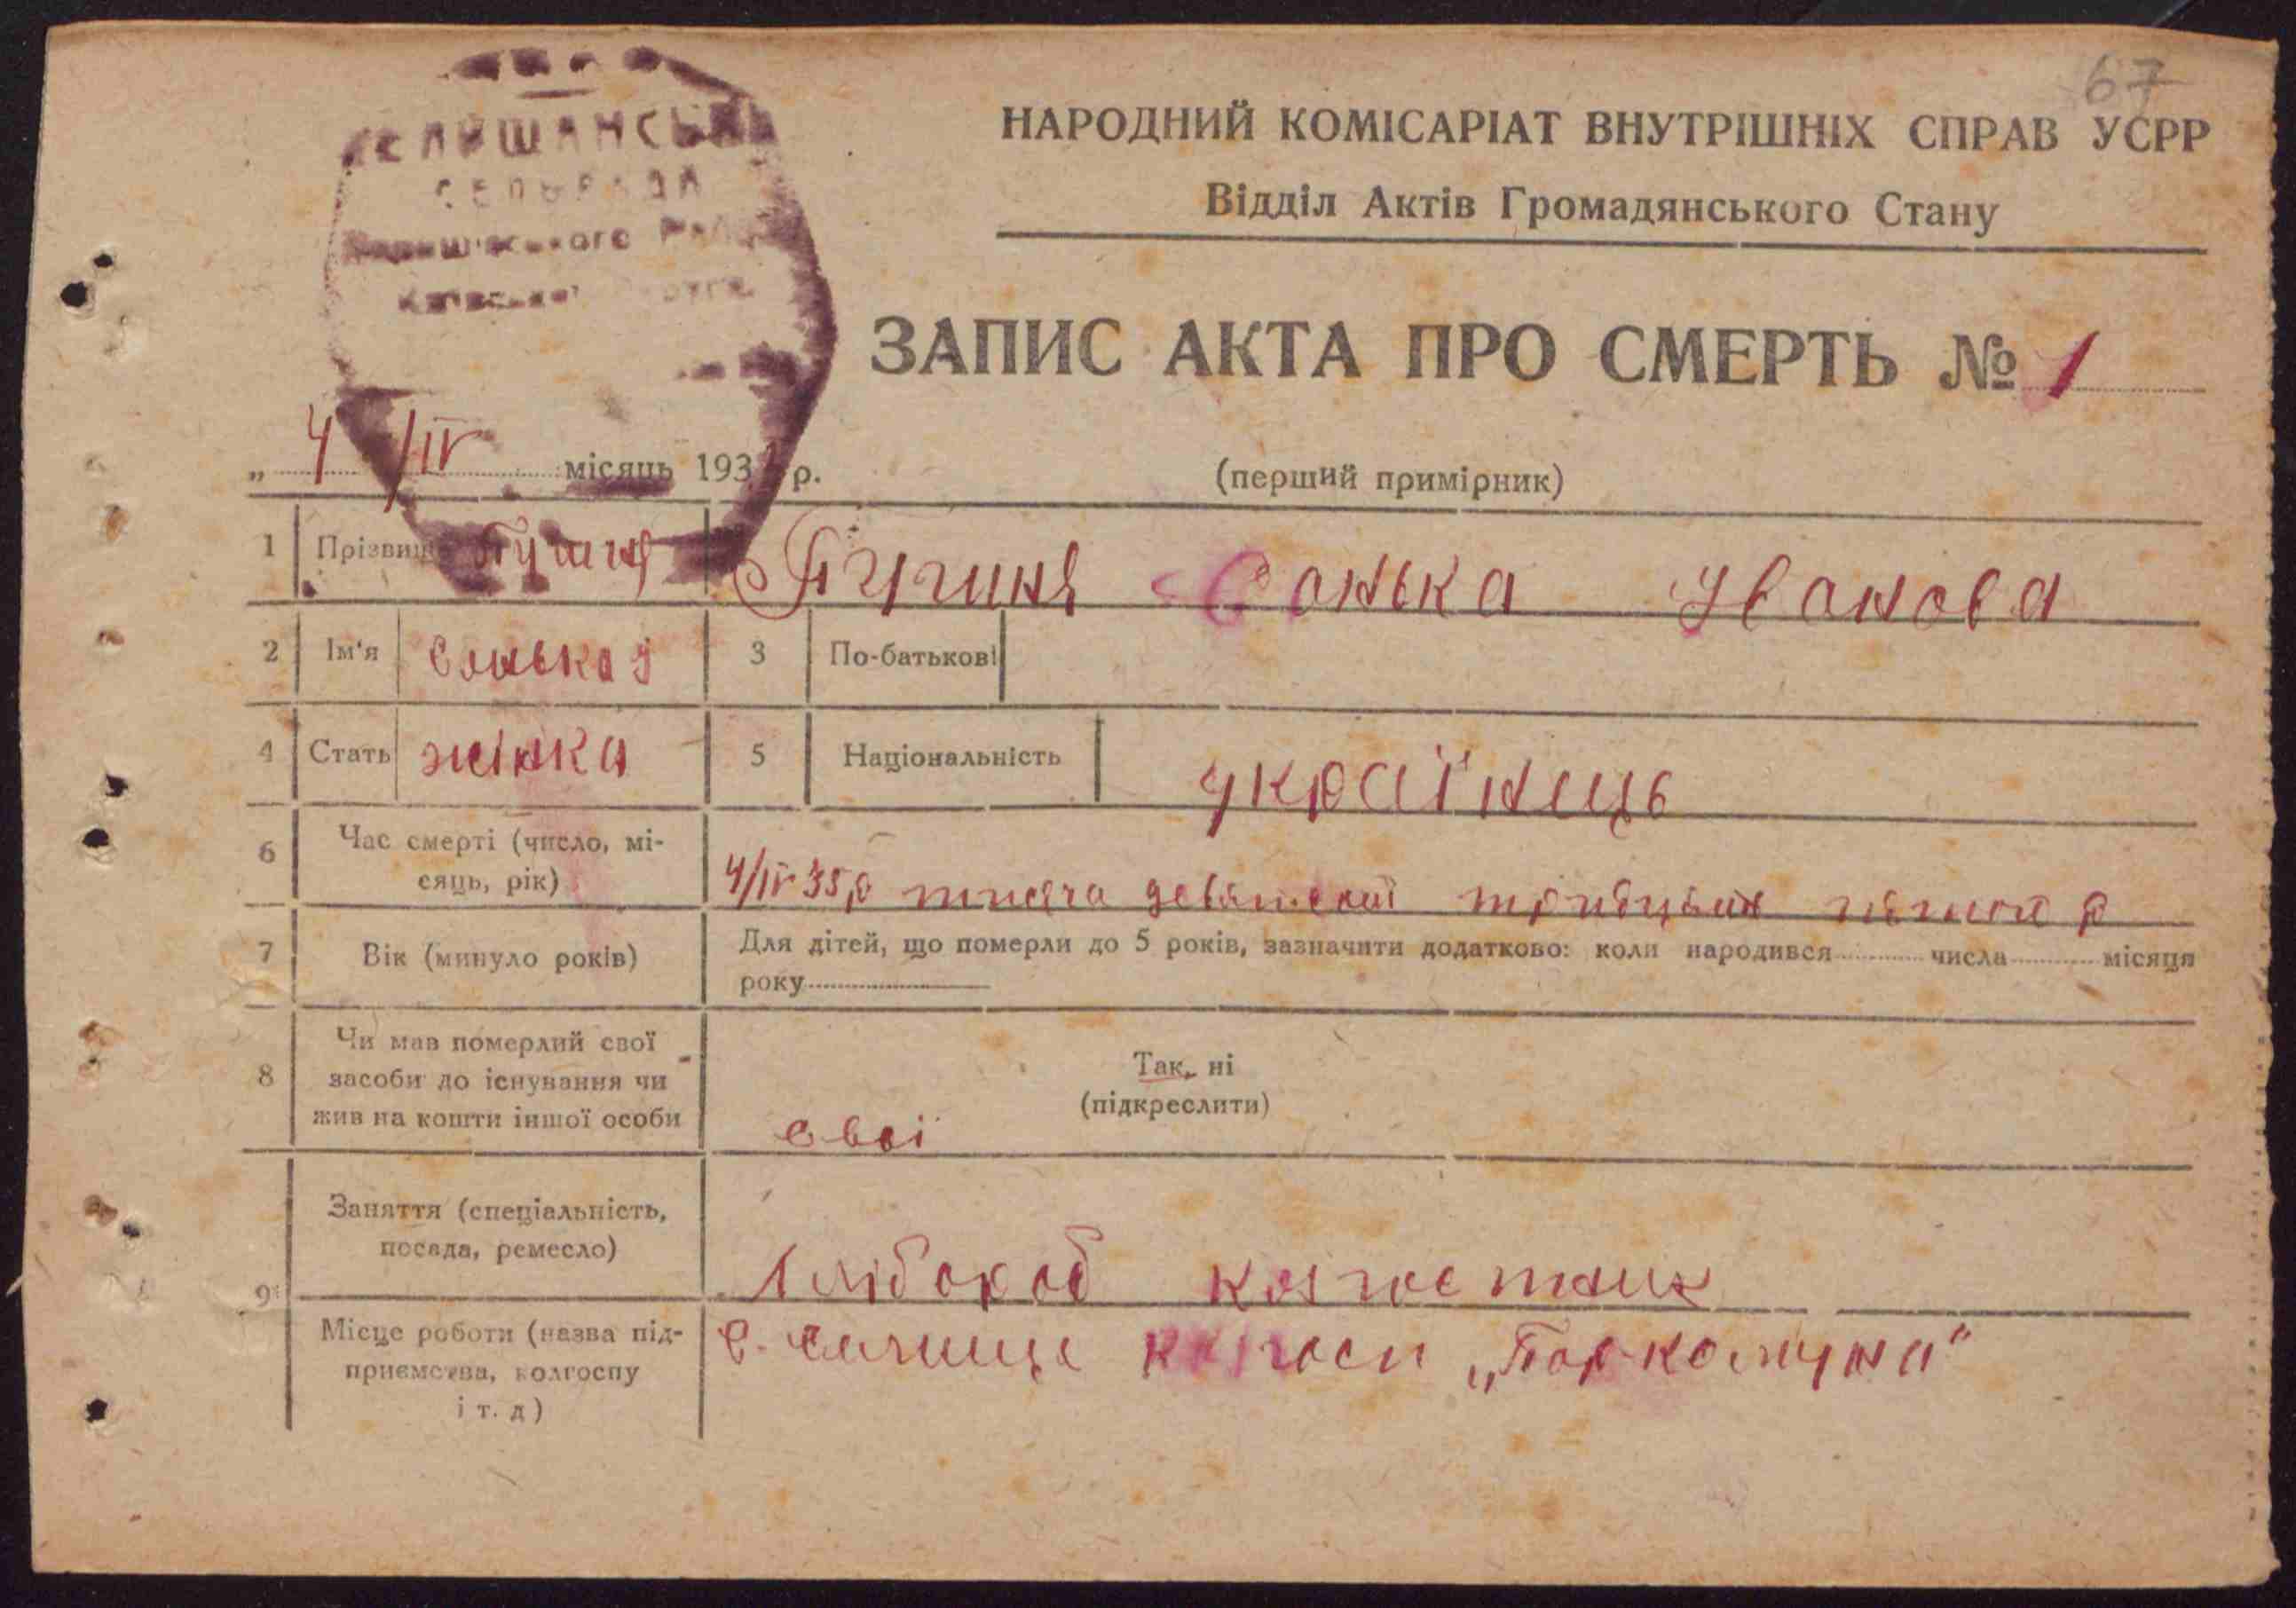 67
НАРОДНИЙ КОМІСАРІАТ ВНУТРІШНІХ СПРАВ УСРР
Відділ Актів Громадянського Стану
СЕЛЬРАДА
ЗАПИС АКТА ПРО СМЕРТЬ № 1
„ 4 /IV місяць 193 р.
(перший примірник)
1 Прізвище
Санька Іванова
2 Ім'я Санька І
3 По-батькові
4 Стать жінка
5 Національність українець
6 Час смерті (число, мі-
сяць, рік)
4/IV 35 р тисяча девятсот тридцять пятого р
7 Вік (минуло років)
Для дітей, що померли до 5 років, зазначити додатково: коли народився числа місяця
року
8 Чи мав померлий свої
засоби до існування чи
жив на кошти іншої особи
Так, ні
(підкреслити)
свої
9 Заняття (спеціальність,
посада, ремесло)
Хлібороб колгоспник
Місце роботи (назва під-
приємства, колгоспу
і т. д)
с. Селище колгосп „Паркомуна"